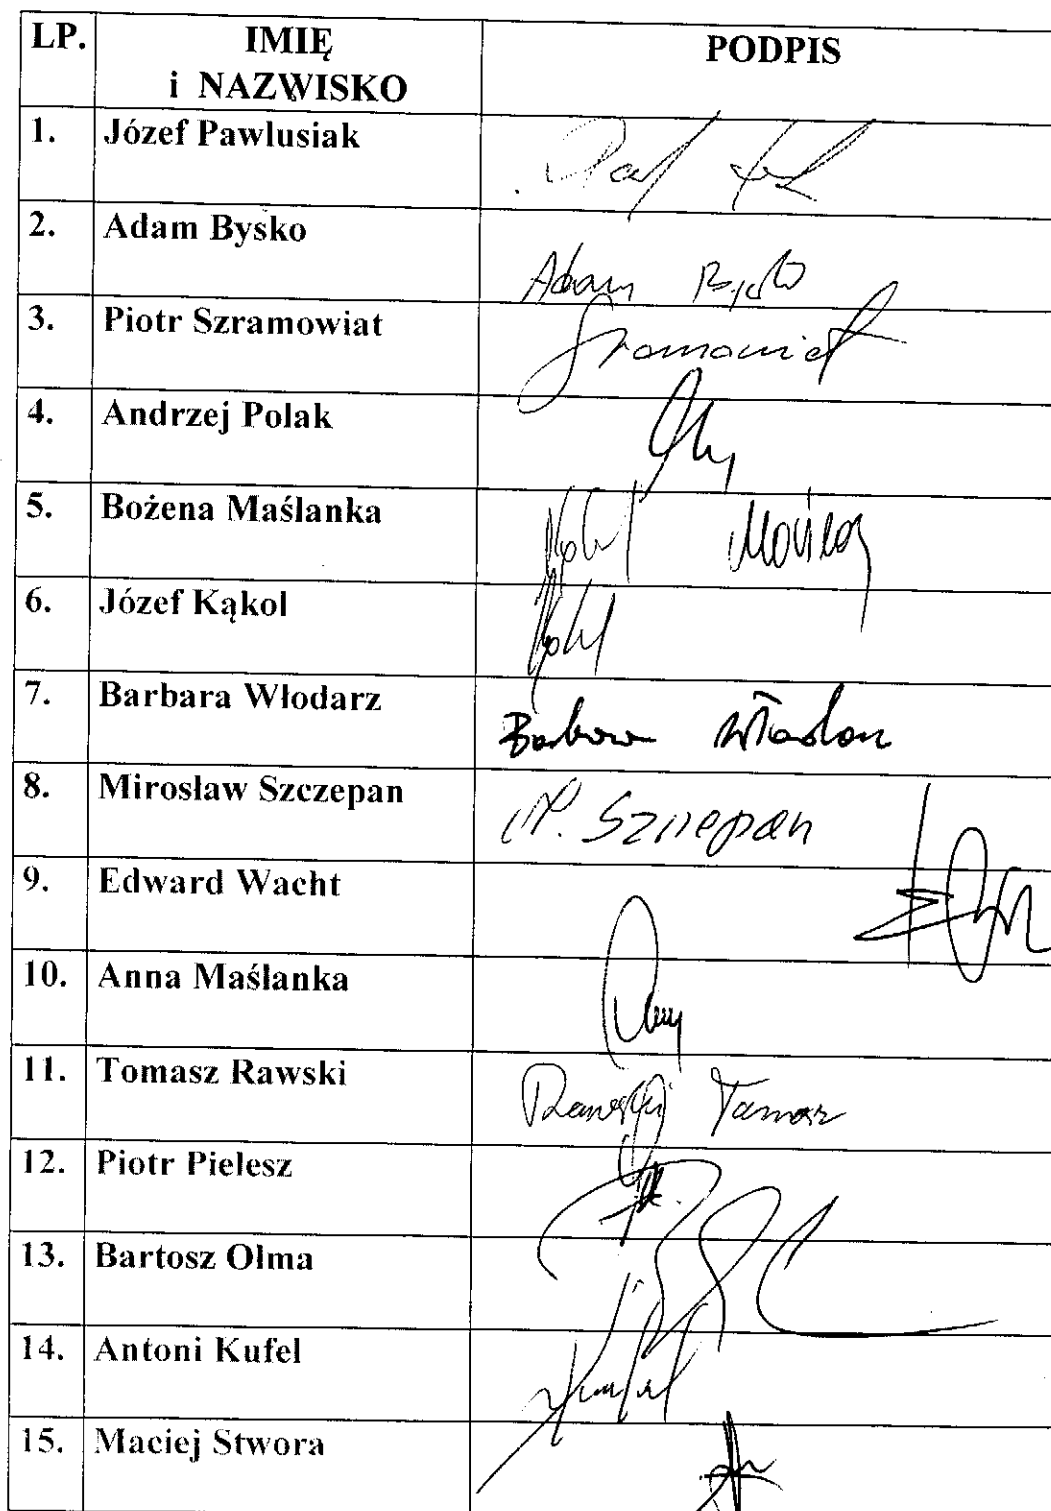 LP. IMIĘ PODPIS
i NAZWISKO
1. Józef Pawlusiak
2. Adam Bysko
Adam Bysko
3. Piotr Szramowiat
Szramowiat
4. Andrzej Polak
5. Bożena Maślanka
6. Józef Kąkol
7. Barbara Włodarz
Barbara Włodarz
8. Mirosław Szczepan
M. Szczepan
9. Edward Wacht
10. Anna Maślanka
11. Tomasz Rawski
Rawski Tomasz
12. Piotr Pielesz
13. Bartosz Olma
14. Antoni Kufel
Kufel
15. Maciej Stwora